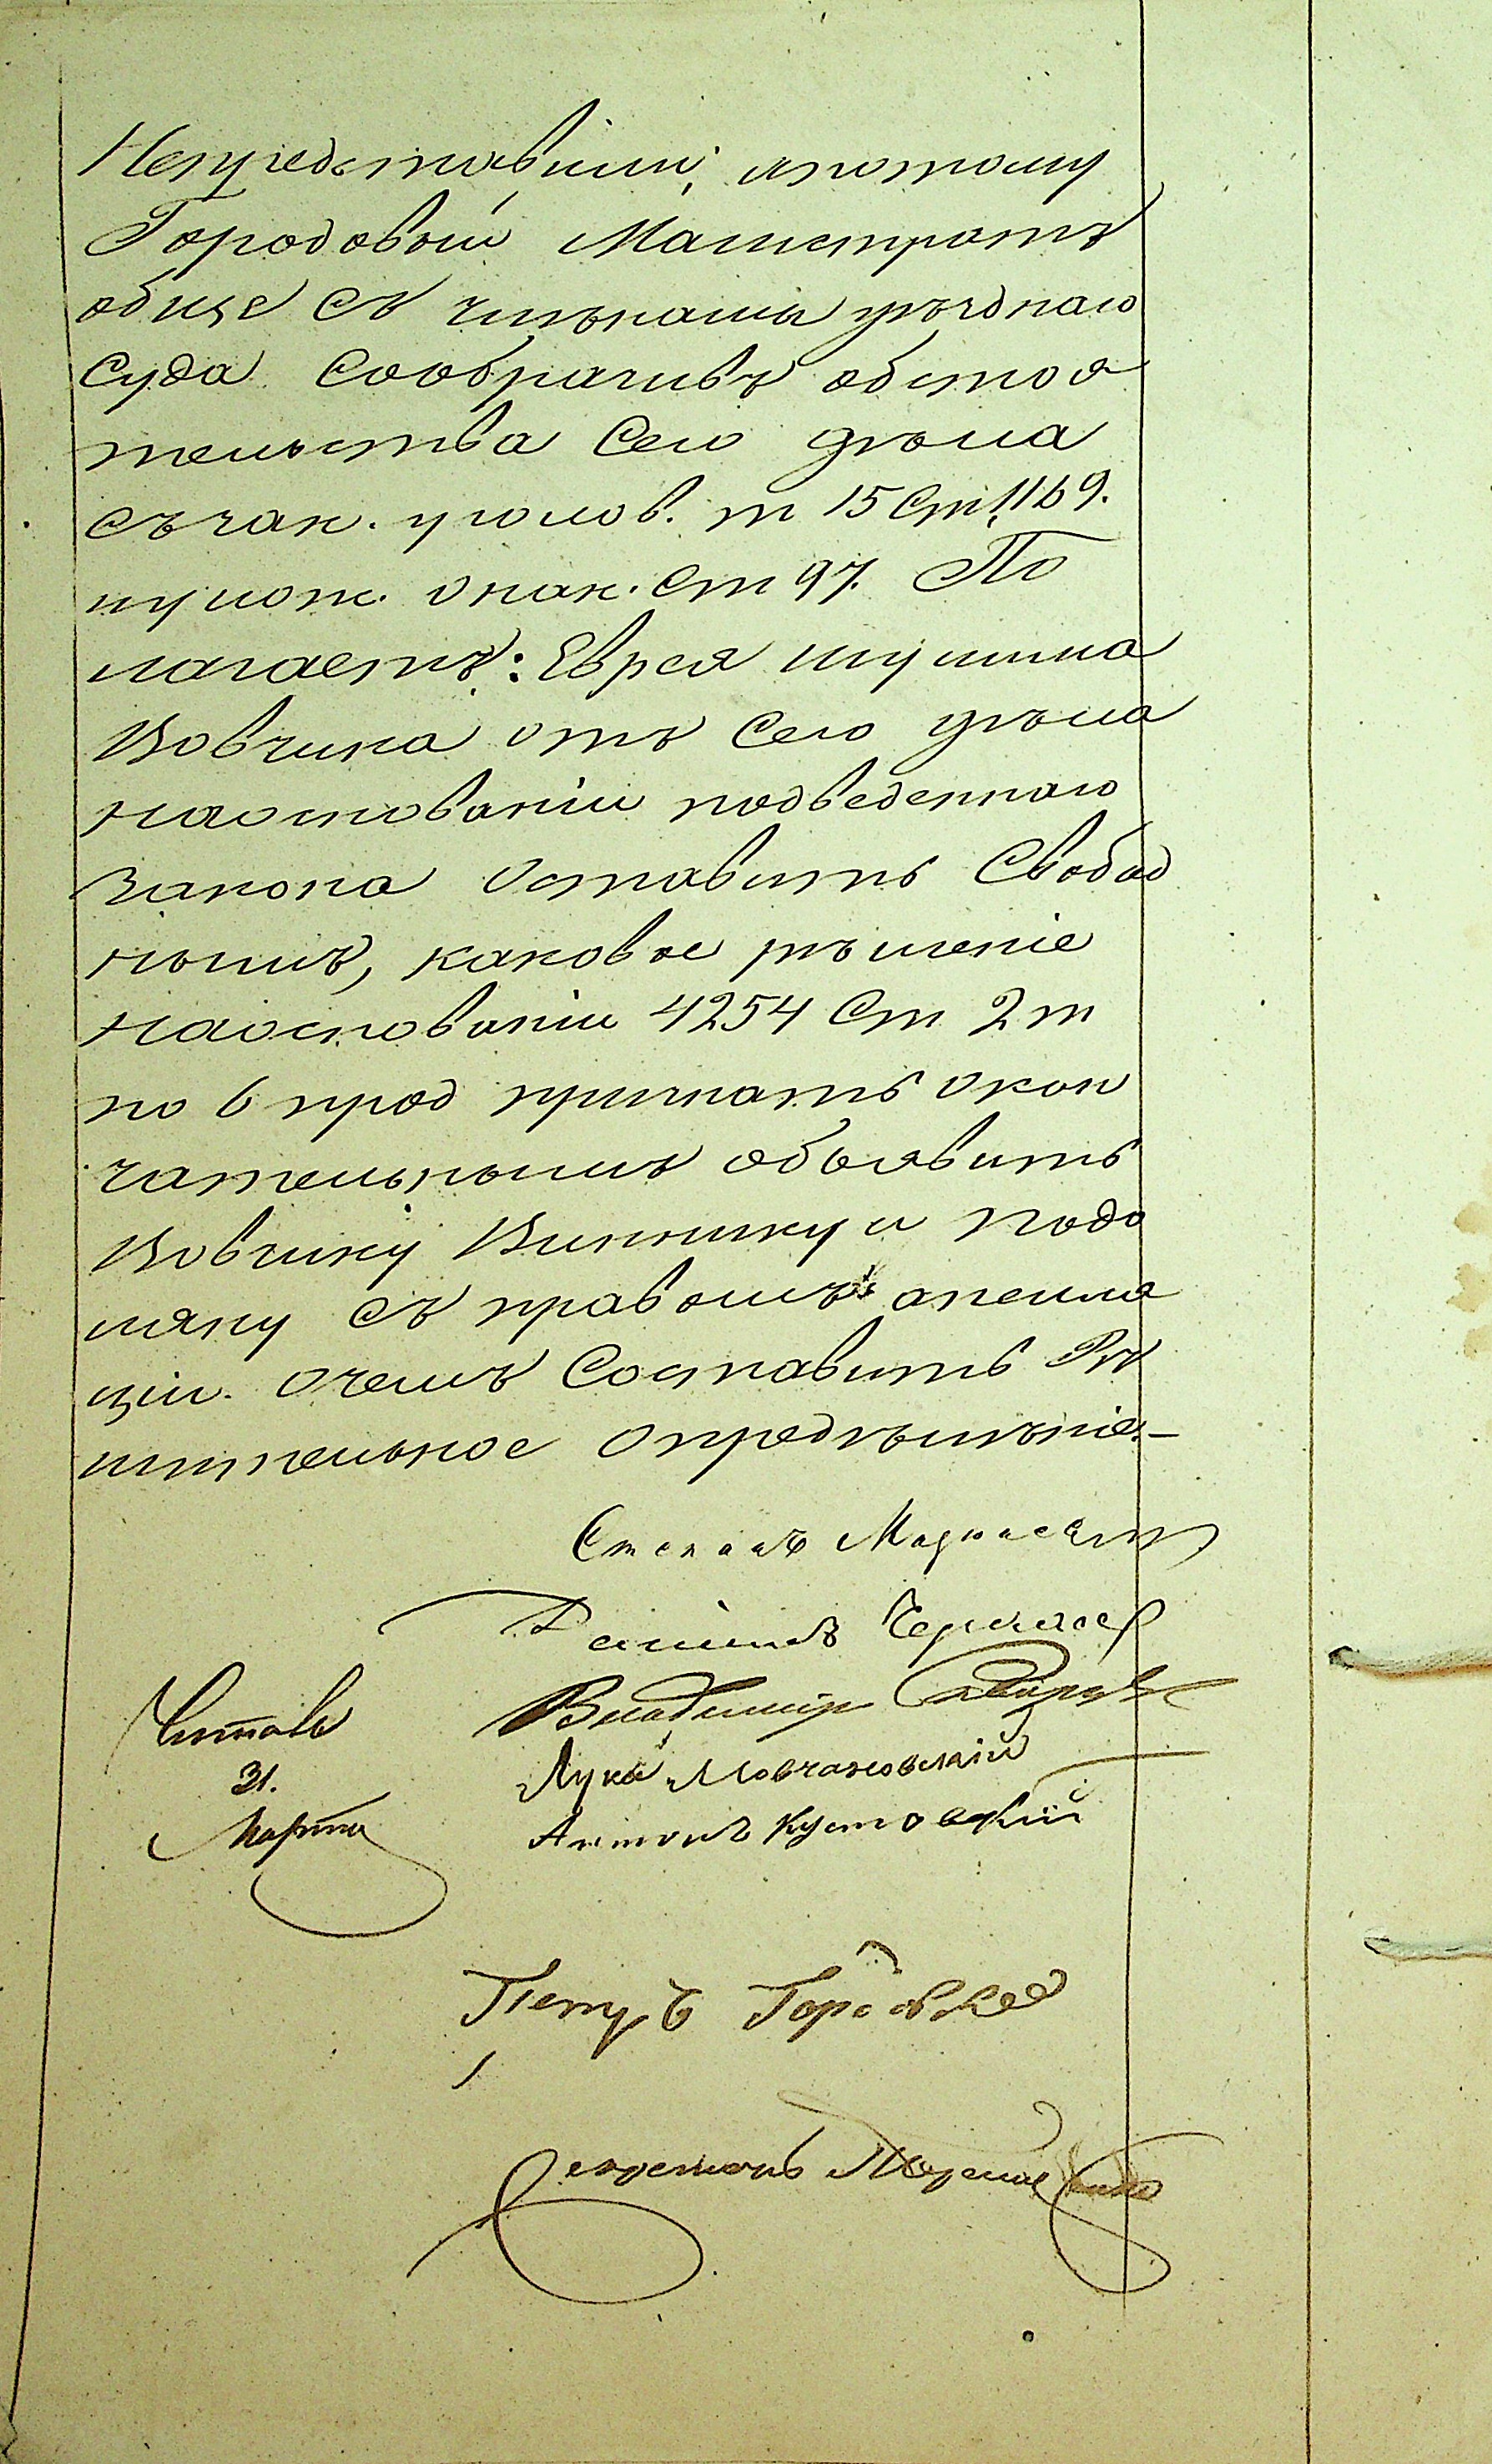 Непредставили, апотому
Городовый Магистратъ
обще съ членами уѣзднаго
Суда Сообразивъ обстоя
тельства Сего дѣла
съ зак. уголов. т 15 Ст. 1169.
и улож. о нак. Ст 97. По
лагаетъ: Еврея Шулима
Вовчика отъ Сего дѣла
наосновании подведеннаго
закона Оставить Свобод
нымъ, каковое рѣшеніе
наоснованіи 4254 Ст 2 т
по 6 прод признать окон
чательнымъ объявить
Вовчику Виннику и Подо
ляку съ правомъ апелля
ціи. Очемъ Составить Рѣ
шительное Опредѣлѣніе. —
Степанъ
Владимір
Читалъ
31.
Марта
Лука Мовчановскій
Антонъ Кустовскій
Петръ
Секретарь